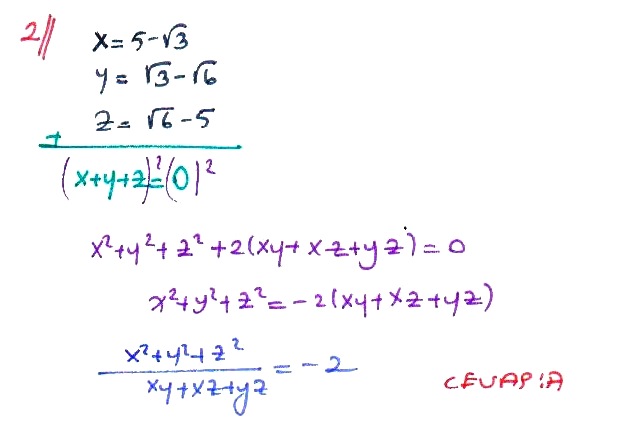 2//
x = 5-√3
y = √3-√6
z = √6-5
+
(x+y+z)² = (0)²
x²+y²+z²+2(xy+xz+yz) = 0
x²+y²+z² = -2(xy+xz+yz)
x²+y²+z²
/ xy+xz+yz = -2
CEVAP:A